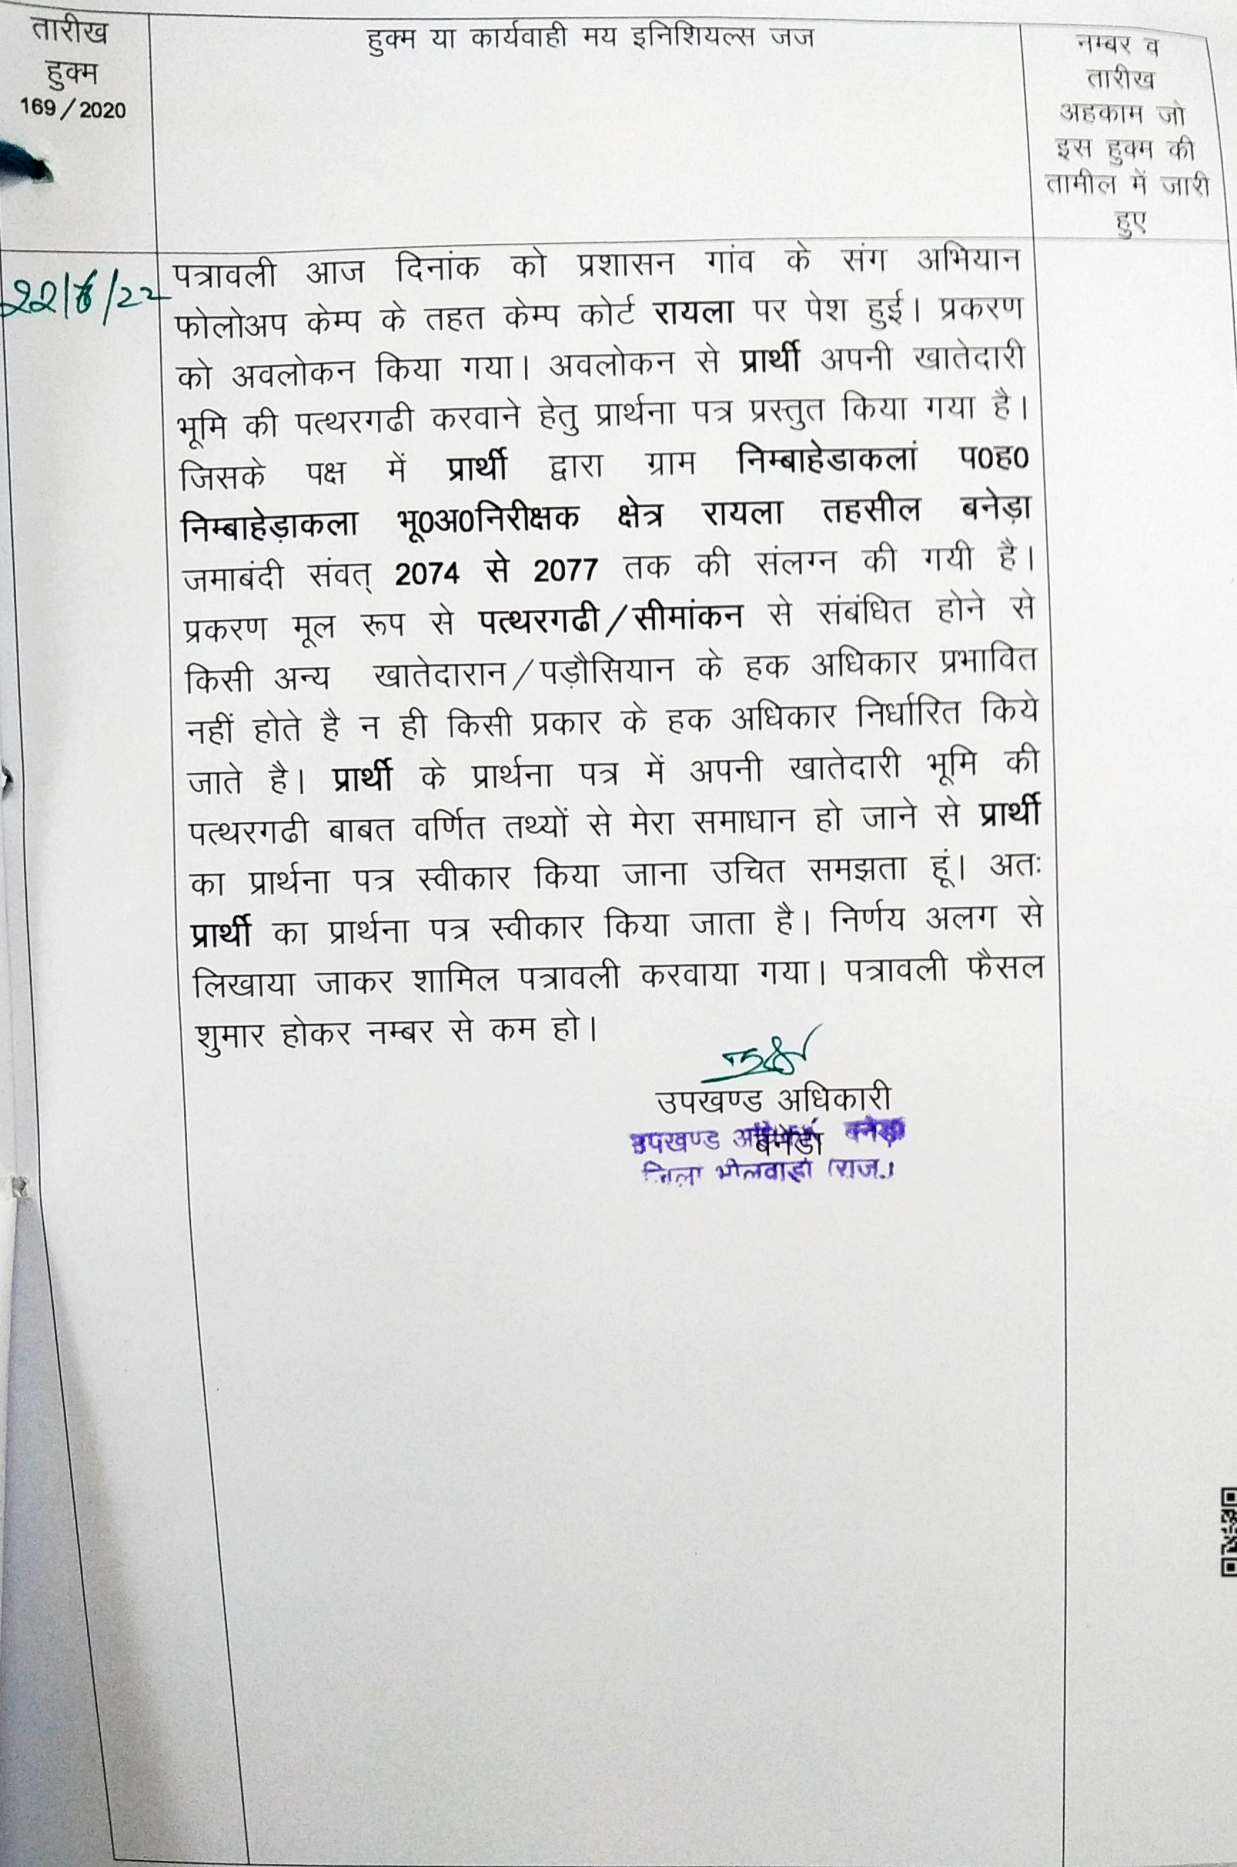 तारीख
हुक्म
169/2020
हुक्म या कार्यवाही मय इनिशियल्स जज
नम्बर व
तारीख
अहकाम जो
इस हुक्म की
तामील में जारी
हुए
पत्रावली आज दिनांक को प्रशासन गांव के संग अभियान
फोलोअप केम्प के तहत केम्प कोर्ट रायला पर पेश हुई। प्रकरण
को अवलोकन किया गया। अवलोकन से प्रार्थी अपनी खातेदारी
भूमि की पत्थरगढी करवाने हेतु प्रार्थना पत्र प्रस्तुत किया गया है।
जिसके पक्ष में प्रार्थी द्वारा ग्राम निम्बाहेडाकलां प0ह0
निम्बाहेड़ाकला भू0अ0निरीक्षक क्षेत्र रायला तहसील बनेड़ा
जमाबंदी संवत् 2074 से 2077 तक की संलग्न की गयी है।
प्रकरण मूल रूप से पत्थरगढी/सीमांकन से संबंधित होने से
किसी अन्य खातेदारान/पड़ौसियान के हक अधिकार प्रभावित
नहीं होते है न ही किसी प्रकार के हक अधिकार निर्धारित किये
जाते है। प्रार्थी के प्रार्थना पत्र में अपनी खातेदारी भूमि की
पत्थरगढी बाबत वर्णित तथ्यों से मेरा समाधान हो जाने से प्रार्थी
का प्रार्थना पत्र स्वीकार किया जाना उचित समझता हूं। अतः
प्रार्थी का प्रार्थना पत्र स्वीकार किया जाता है। निर्णय अलग से
लिखाया जाकर शामिल पत्रावली करवाया गया। पत्रावली फैसल
शुमार होकर नम्बर से कम हो।
उपखण्ड अधिकारी
बनेडा
उपखण्ड बनेड़ा
जिला भीलवाड़ा (राज.)